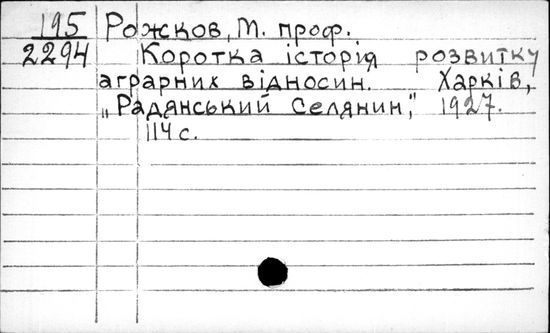 195 Рожков, М. проф.
2294 Коротка історія розвитку
аграрних відносин. Харків,
„Радянський Селянин,” 1927.
114 с.